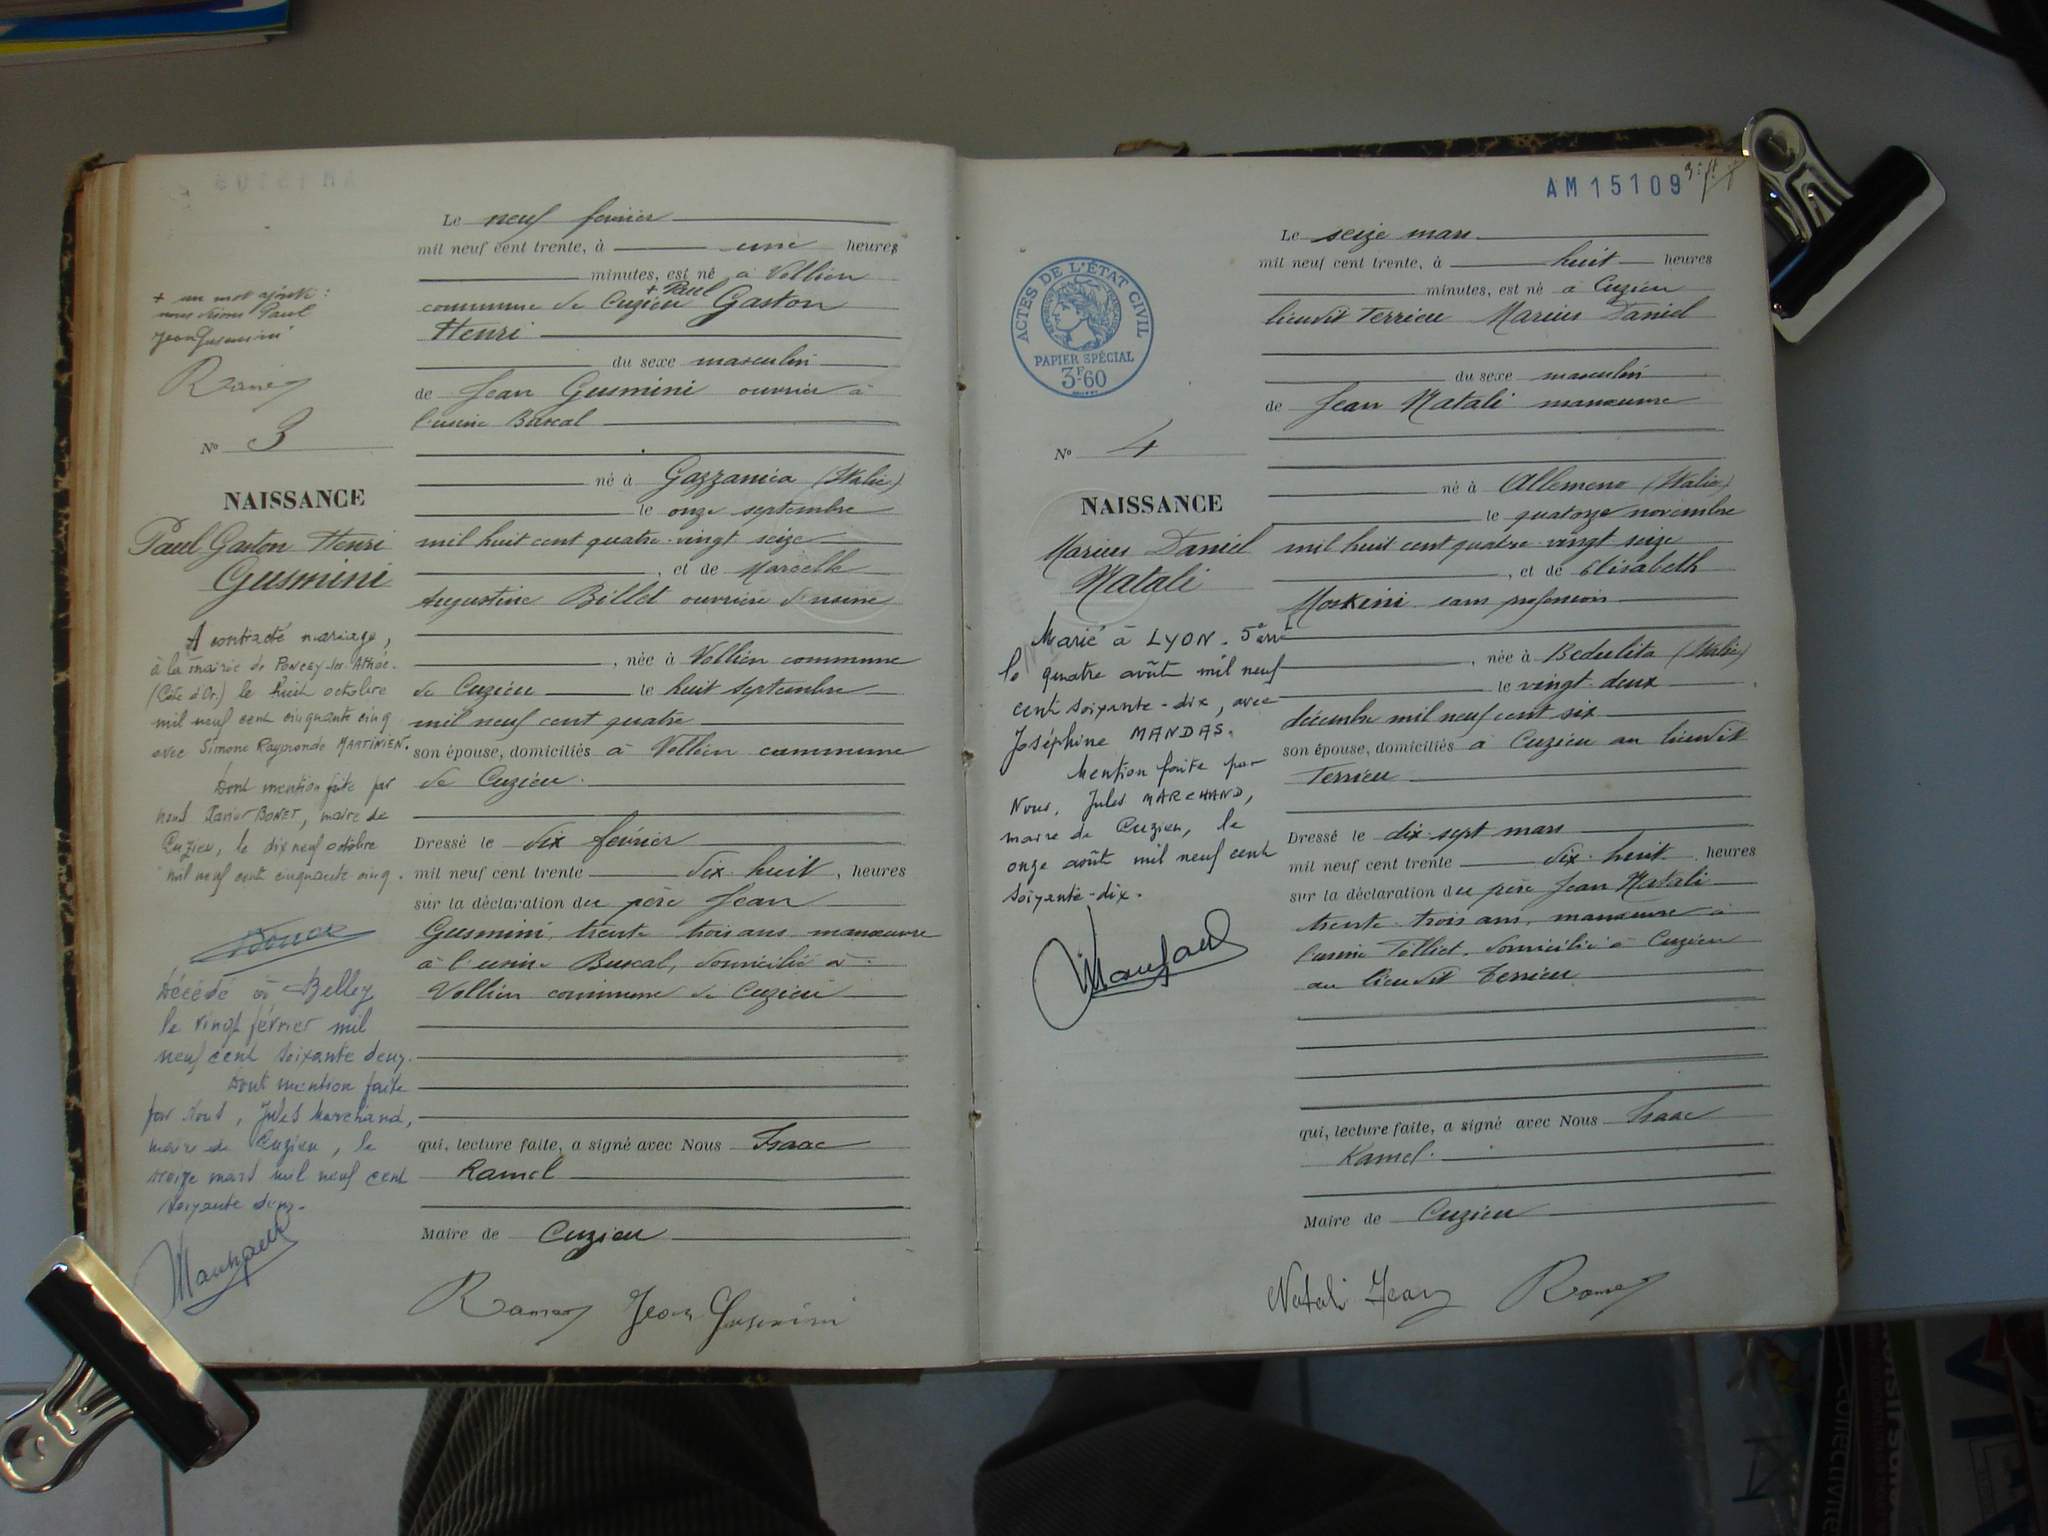 Le neuf février
mil neuf cent trente, à une heures
minutes, est né à Vollien
+ Paul
commune de Cuzieu Gaston
Henri
du sexe masculin
de Jean Gusmini ouvrier à
l'usine Buscal
né à Gazzanica (Italie)
le onze septembre
mil huit cent quatre-vingt seize
, et de Marcelle
Augustine Billet ouvrière d'usine
, née à Vollien commune
de Cuzieu le huit septembre
mil neuf cent quatre
son épouse, domiciliés à Vollien commune
de Cuzieu.
Dressé le dix février
mil neuf cent trente dix-huit, heures
sur la déclaration du père Jean
Gusmini, trente trois ans manœuvre
à l'usine Buscal, domicilié à
Vollien commune de Cuzieu
qui, lecture faite, a signé avec Nous Isaac
Ramel
Maire de Cuzieu
Ramel Jean Gusmini
+ un mot ajouté :
nous disons Paul
Jean Gusmini
Ramel
N° 3
NAISSANCE
Paul Gaston Henri
Gusmini
A contracté mariage,
à la mairie de PONCEY-les-Athée.
(Côte d'Or) le huit octobre
mil neuf cent cinquante cinq
avec Simone Raymonde MARTINIEN.
Dont mention faite par
nous Xavier BONET, maire de
Cuzieu, le dix neuf octobre
mil neuf cent cinquante-cinq.
Décédé à Belley
le vingt février mil
neuf cent soixante deux.
Dont mention faite
par Nous, Jules Marchand,
maire de Cuzieu, le
seize mars mil neuf cent
soixante deux.
Marchand
AM 15109
ACTES DE L'ÉTAT CIVIL
PAPIER SPÉCIAL
3F60
N° 4
NAISSANCE
Marius Daniel
Natali
Marié à LYON - 5e arrt
le quatre août mil neuf
cent soixante-dix, avec
Joséphine MANDAS.
Mention faite par
Nous, Jules MARCHAND,
maire de Cuzieu, le
onze août mil neuf cent
soixante-dix.
Marchand
Le seize mars
mil neuf cent trente, à huit heures
minutes, est né à Cuzieu
lieudit Terrieu Marius Daniel
du sexe masculin
de Jean Natali manœuvre
né à Allemeno (Italie)
le quatorze novembre
mil huit cent quatre-vingt seize
, et de Elisabeth
Moskini sans profession
, née à Bedulita (Italie)
le vingt-deux
décembre mil neuf cent six
son épouse, domiciliés à Cuzieu au lieudit
Terrieu
Dressé le dix-sept mars
mil neuf cent trente dix-huit heures
sur la déclaration du père Jean Natali
trente-trois ans, manœuvre à
l'usine Tilliet, domicilié à Cuzieu
au lieudit Terrieu
qui, lecture faite, a signé avec Nous Isaac
Ramel.
Maire de Cuzieu
Natali Jean Ramel